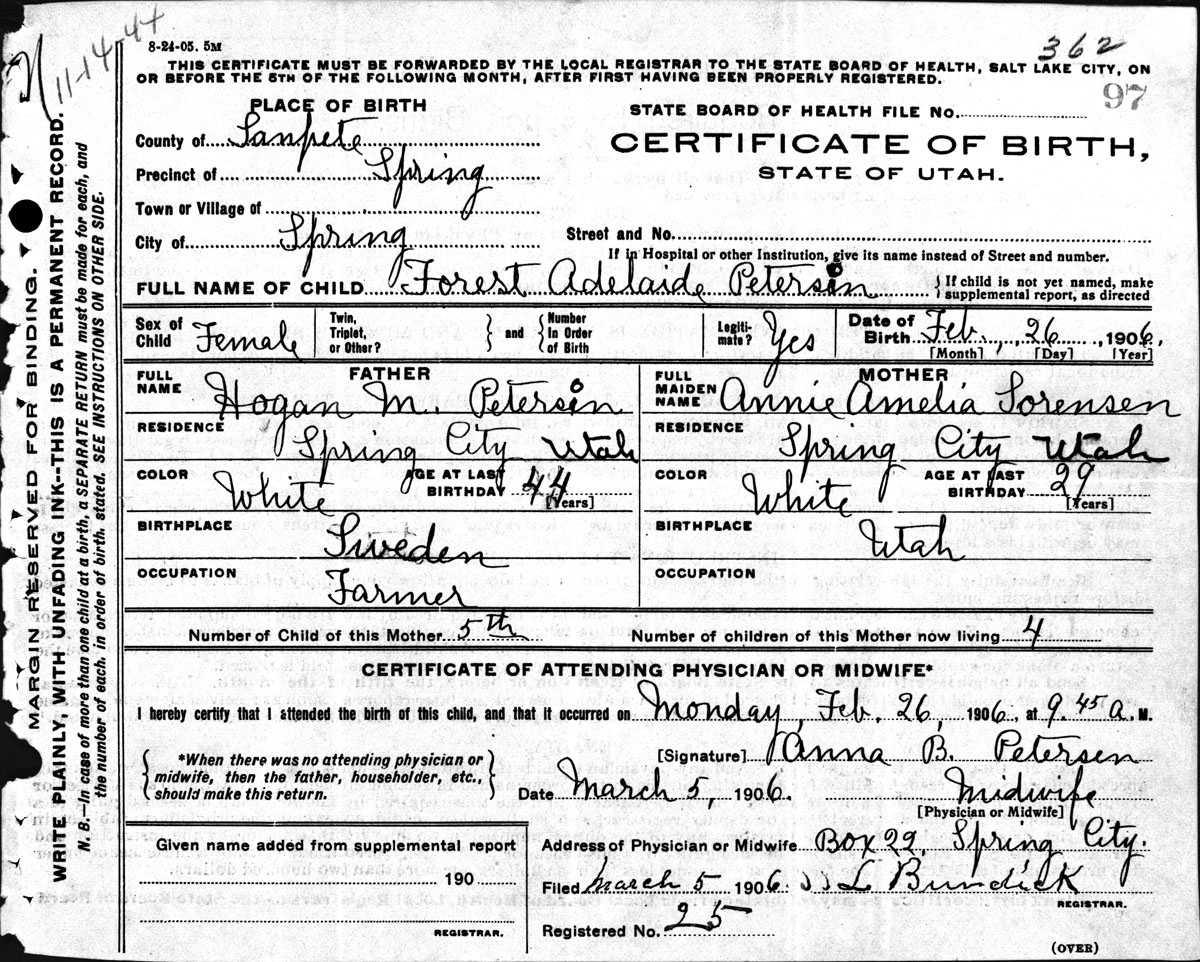 11-14-44
8-24-05. 5M
362
THIS CERTIFICATE MUST BE FORWARDED BY THE LOCAL REGISTRAR TO THE STATE BOARD OF HEALTH, SALT LAKE CITY, ON
OR BEFORE THE 5TH OF THE FOLLOWING MONTH, AFTER FIRST HAVING BEEN PROPERLY REGISTERED.
97
PLACE OF BIRTH
STATE BOARD OF HEALTH FILE No.
County of Sanpete
CERTIFICATE OF BIRTH,
Precinct of Spring
STATE OF UTAH.
Town or Village of
City of Spring
Street and No.
If in Hospital or other Institution, give its name instead of Street and number.
FULL NAME OF CHILD Forest Adelaide Peterson { If child is not yet named, make supplemental report, as directed
Sex of Child Female
Twin, Triplet, or Other? } and { Number In Order of Birth
Legitimate? Yes
Date of Birth Feb., 26, 1906,
[Month] [Day] [Year]
FATHER
FULL NAME Hogan M. Peterson
RESIDENCE Spring City Utah
COLOR White AGE AT LAST BIRTHDAY 44 [Years]
BIRTHPLACE Sweden
OCCUPATION Farmer
MOTHER
FULL MAIDEN NAME Annie Amelia Sorensen
RESIDENCE Spring City Utah
COLOR White AGE AT LAST BIRTHDAY 29 [Years]
BIRTHPLACE Utah
OCCUPATION
Number of Child of this Mother 5th Number of children of this Mother now living 4
CERTIFICATE OF ATTENDING PHYSICIAN OR MIDWIFE*
I hereby certify that I attended the birth of this child, and that it occurred on Monday, Feb. 26, 1906, at 9.45 a. M.
{ *When there was no attending physician or midwife, then the father, householder, etc., should make this return. }
[Signature] Anna B. Petersen
Date March 5, 1906. Midwife
[Physician or Midwife]
Address of Physician or Midwife Box 22, Spring City.
Given name added from supplemental report
190
REGISTRAR.
Filed March 5 1906. Bundick
REGISTRAR.
Registered No. 25
(OVER)
MARGIN RESERVED FOR BINDING.
WRITE PLAINLY, WITH UNFADING INK--THIS IS A PERMANENT RECORD.
N.B.-In case of more than one child at a birth, a SEPARATE RETURN must be made for each, and
the number of each, in order of birth, stated. SEE INSTRUCTIONS ON OTHER SIDE.